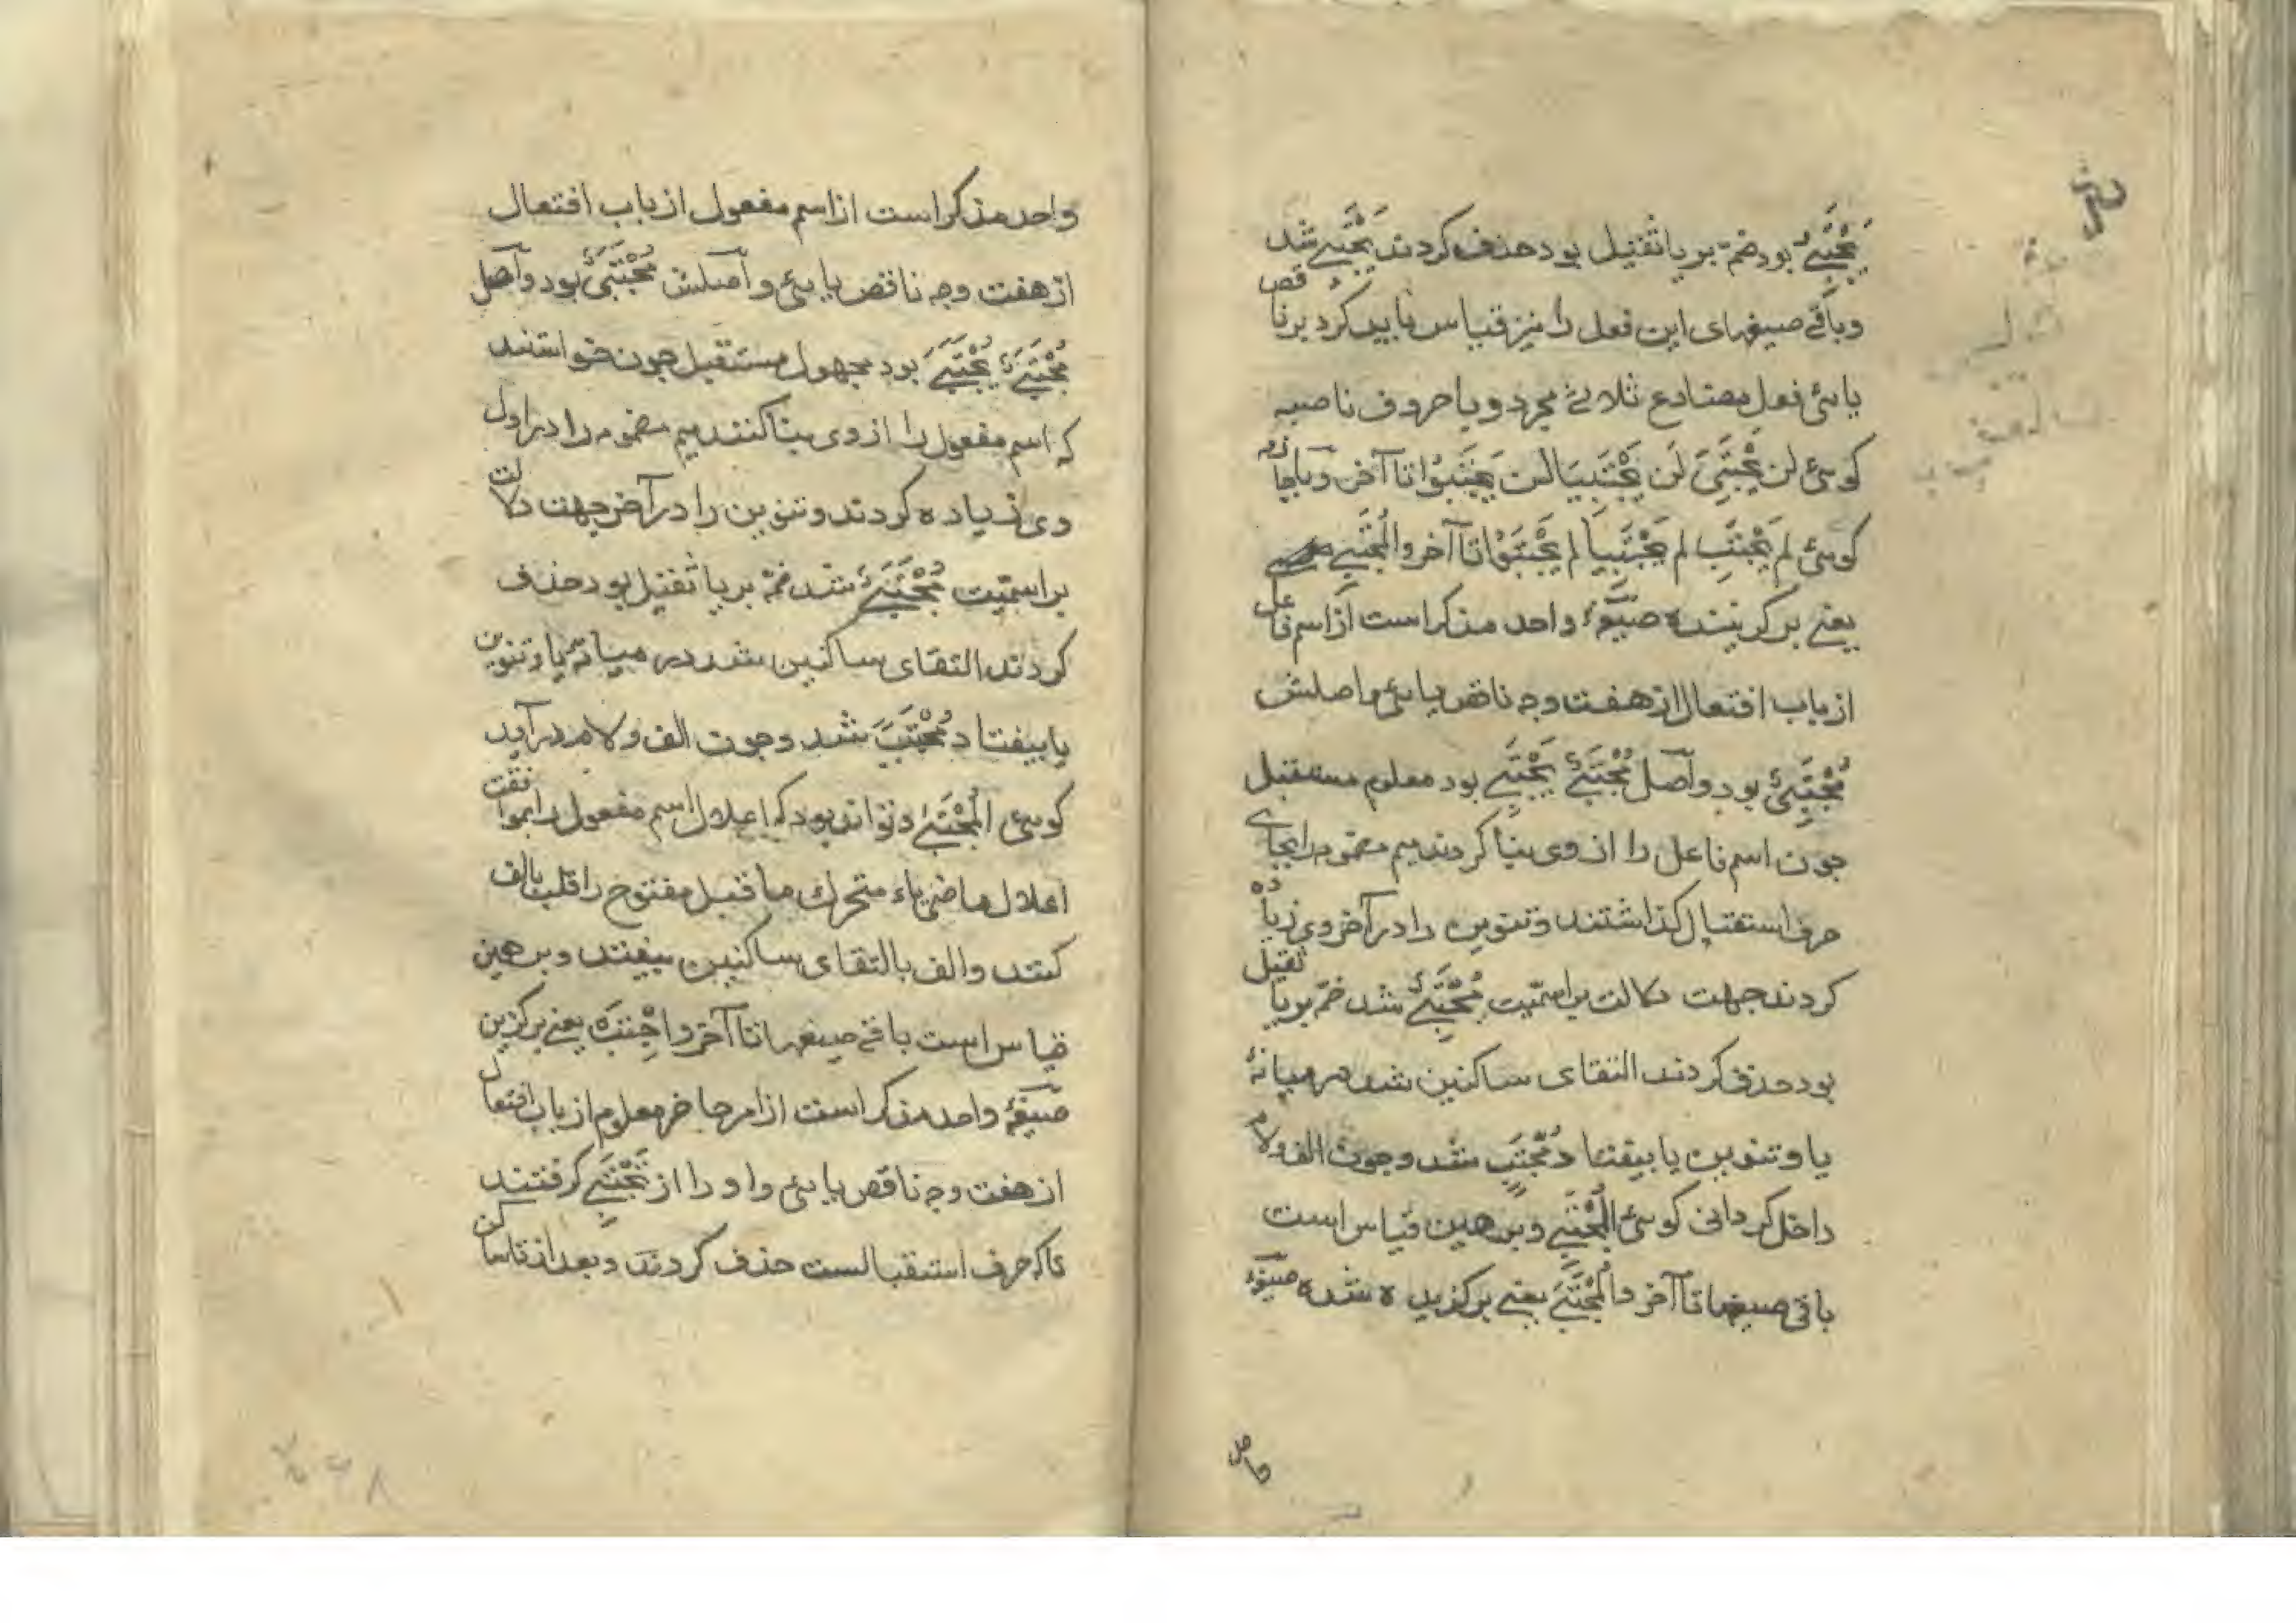 یَجْتَبِیُ بود ضمّ بر یا ثقیل بود حذف کردند یَجْتَبِی شد
و باقی صیغهای این فعل را نیز قیاس باید کرد بر ناقص
یائی فعل مضارع ثلاثی مجرد و با حروف ناصبه
کوئی لن یَجْتَبِیَ لَن یَجْتَبِیَا لن یَجْتَبُوْا تا آخر و با جازمه
کوئی لم یَجْتَبِ لم یَجْتَبِیَا لم یَجْتَبُوْا تا آخر و الْمُجْتَبِی
یعنی بر کزیننده صیغهٔ واحد مذکر است از اسم فاعل
از باب افتعال از هفت وجه ناقص یائی و اصلش
مُجْتَبِیٌ بود و اصل مُجْتَبِیٌ یَجْتَبِی بود معلوم مستقبل
جون اسم فاعل را از وی بنا کردند میم مضمومه را بجای
حرف استقبال کذاشتند و تنوین را در آخر وی زیاده
کردند جهت دلالت بر اسمیّت مُجْتَبِیٌ شد ضمّ بر یا ثقیل
بود حذف کردند التقای ساکنین شد در میانهٔ
یا و تنوین یا بیفتاد مُجْتَبٍ شد و جون الف و لام
داخل کردانی کوئی الْمُجْتَبِی و برهمین قیاس است
باقی صیغها تا آخر و الْمُجْتَبَی یعنی برکزیده شده صیغهٔ
واحد مذکر است از اسم مفعول از باب افتعال
از هفت وجه ناقص یائی و اصلش مُجْتَبَیٌ بود و اصل
مُجْتَبَیٌ یُجْتَبَی بود مجهول مستقبل جون خواستند
که اسم مفعول را از وی بنا کنند میم مضمومه را در اول
وی زیاده کردند و تنوین را در آخر جهت دلالت
بر اسمیّت مُجْتَبَیٌ شد ضمّ بر یا ثقیل بود حذف
کردند التقای ساکنین شد در میانهٔ یا و تنوین
یا بیفتاد مُجْتَبً شد و جون الف و لام در آید
کوئی الْمُجْتَبَی و تواند بود که اعلال اسم مفعول را بموافقت
اعلال ماضی یاء متحرک ما قبل مفتوح را قلب بالف
کنند و الف بالتقای ساکنین بیفتد و بر همین
قیاس است باقی صیغها تا آخر و اِجْتَبِهْ یعنی برکزین
صیغهٔ واحد مذکر است از امر حاضر معلوم از باب افتعال
از هفت وجه ناقص یائی و او را از تَجْتَبِی کرفتند
تا که حرف استقبالست حذف کردند و بعد از تا ساکن